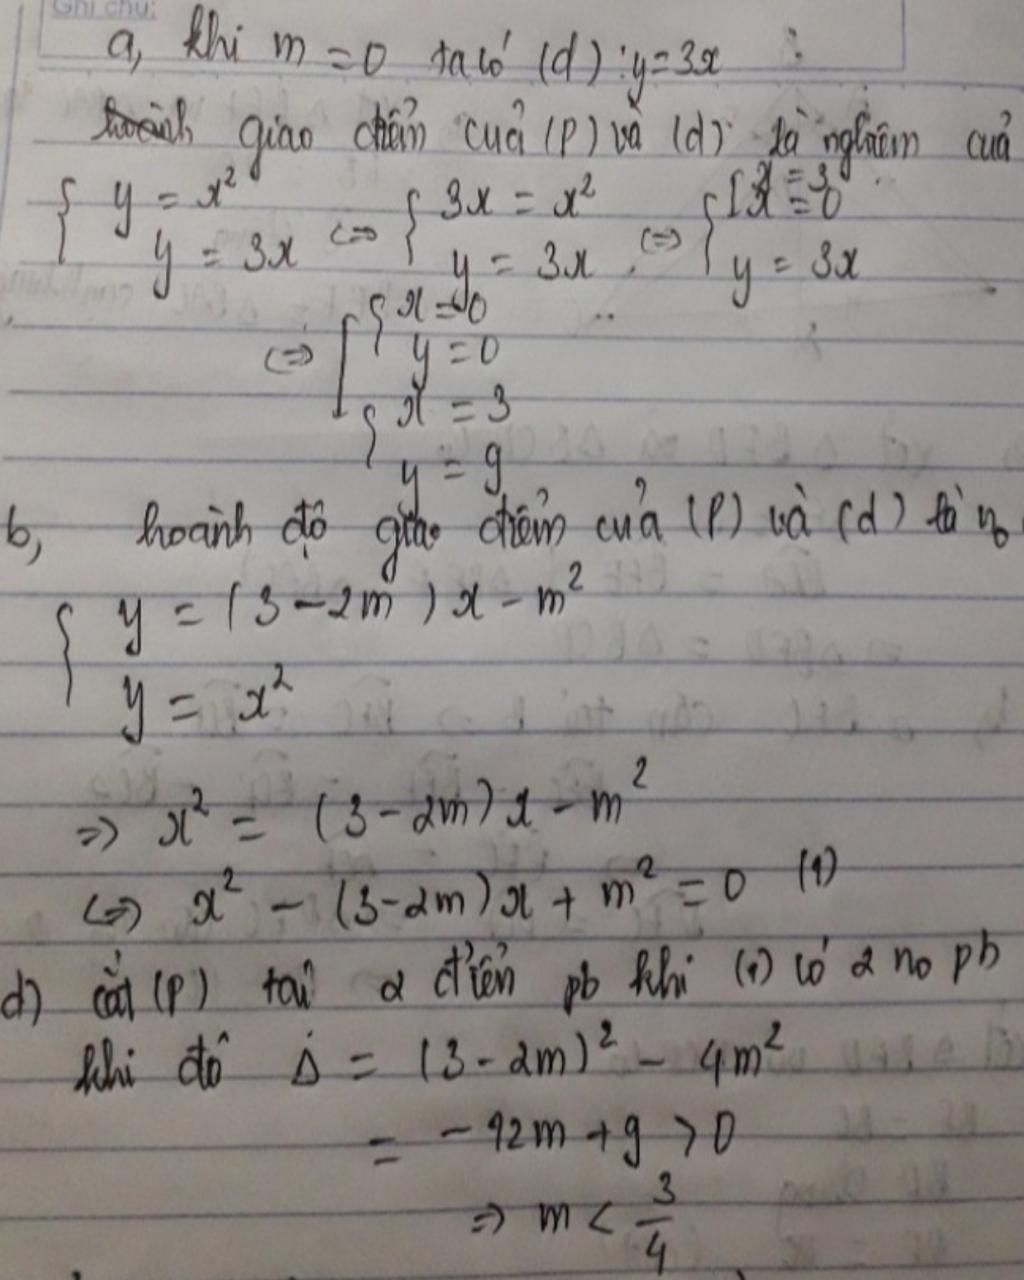 Ghi chú:
a, khi m = 0 ta có (d) : y = 3x
giao điểm của (P) và (d) là nghiệm của
{ y = x² y = 3x <=> { 3x = x² y = 3x <=> { [ x = 3 x = 0 y = 3x
<=> [ { x = 0 y = 0
{ x = 3 y = 9
b, hoành độ giao điểm của (P) và (d) là no
{ y = (3 - 2m) x - m²
y = x²
=> x² = (3 - 2m) x - m²
<=> x² - (3 - 2m) x + m² = 0 (1)
d) cắt (P) tại 2 điểm pb khi (1) có 2 no pb
khi đó Δ = (3 - 2m)² - 4m²
= - 12m + 9 > 0
=> m < 3/4